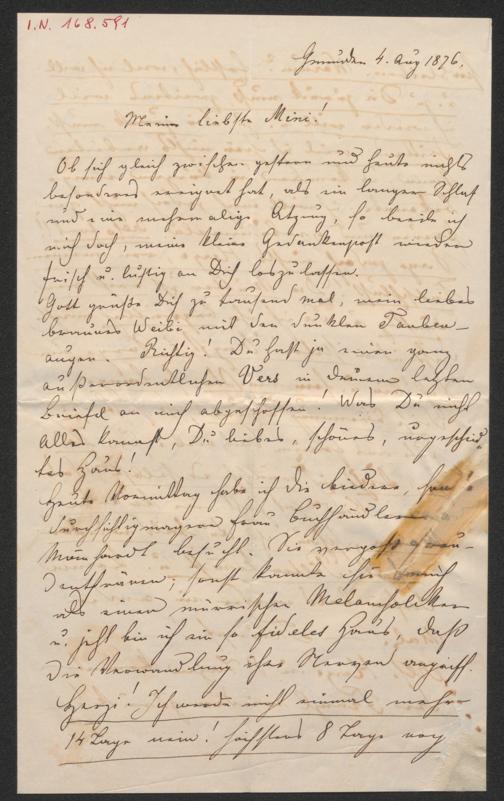 I.N. 168.591
Gmunden 4. Aug 1876.
Meine liebste Mini!
Ob sich gleich zwischen gestern und heute nichts
besonderes ereignet hat, als ein langer Schlaf
und eine mehrmalige Atzung, so beeile ich
mich doch, meine kleine Gedankenpost wieder
frisch u. lustig an Dich loszulassen.
Gott grüße Dich zu tausend mal, mein liebes
braunes Weibi mit den dunklen Tauben-
augen. Richtig! Du hast ja einen ganz
außerordentlichen Vers in Deinem letzten
Briefe an mich abgeschossen! Was Du nicht
Alles kannst, Du liebes, schönes, ungeschick-
tes Haus!
Heute Vormittag habe ich die biedere,
durchsichtigmagere Frau Buchhändlerin
Mänhardt besucht. Sie vergoß Freu-
denthränen; sonst kannte sie mich
als einen mürrischen Melancholiker
u. jetzt bin ich ein so fideles Haus, daß
die Verwandlung ihre Nerven angriff.
Herzi! Ich werde nicht einmal mehr
14 Tage nein! höchstens 8 Tage noch